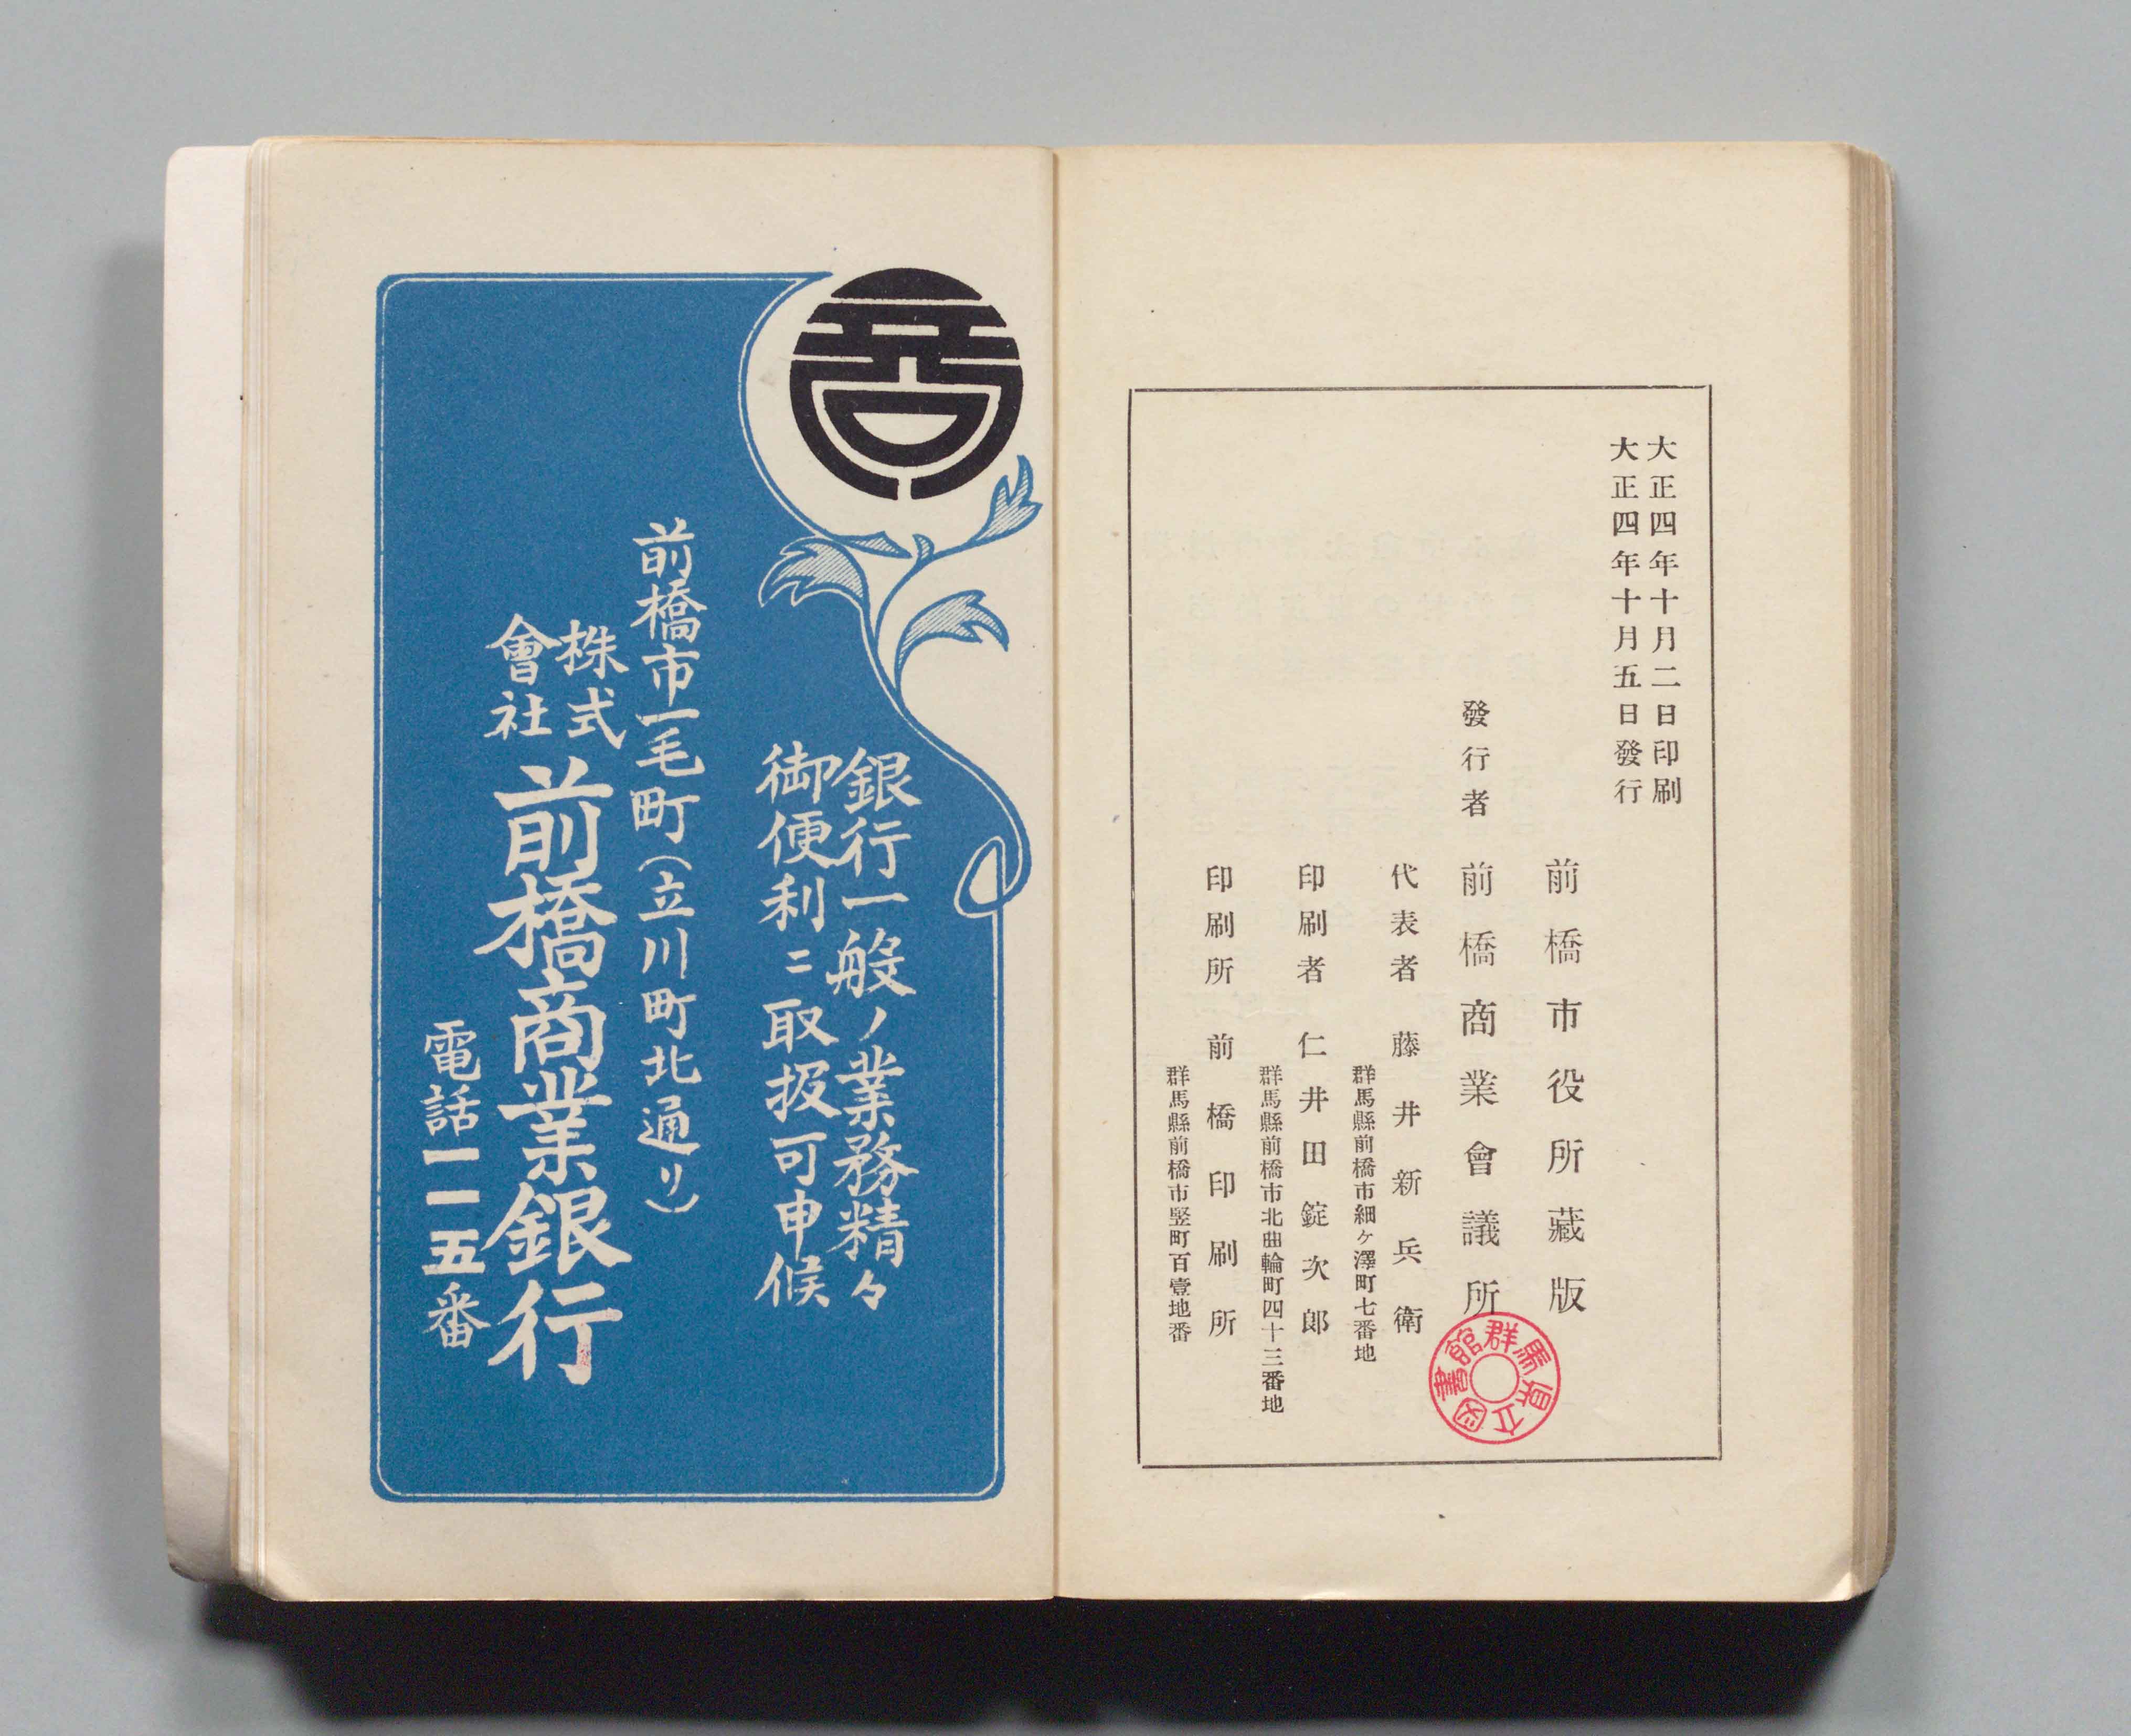 大正四年十月二日印刷
大正四年十月五日發行
前橋市役所藏版
發行者 前橋商業會議所
代表者 藤井新兵衛
群馬縣前橋市細ヶ澤町七番地
印刷者 仁井田錠次郎
群馬縣前橋市北曲輪町四十三番地
印刷所 前橋印刷所
群馬縣前橋市竪町百壹地番
群馬県立図書館
銀行一般ノ業務精々
御便利ニ取扱可申候
前橋市一毛町(立川町北通リ)
株式
會社
前橋商業銀行
電話一一五番